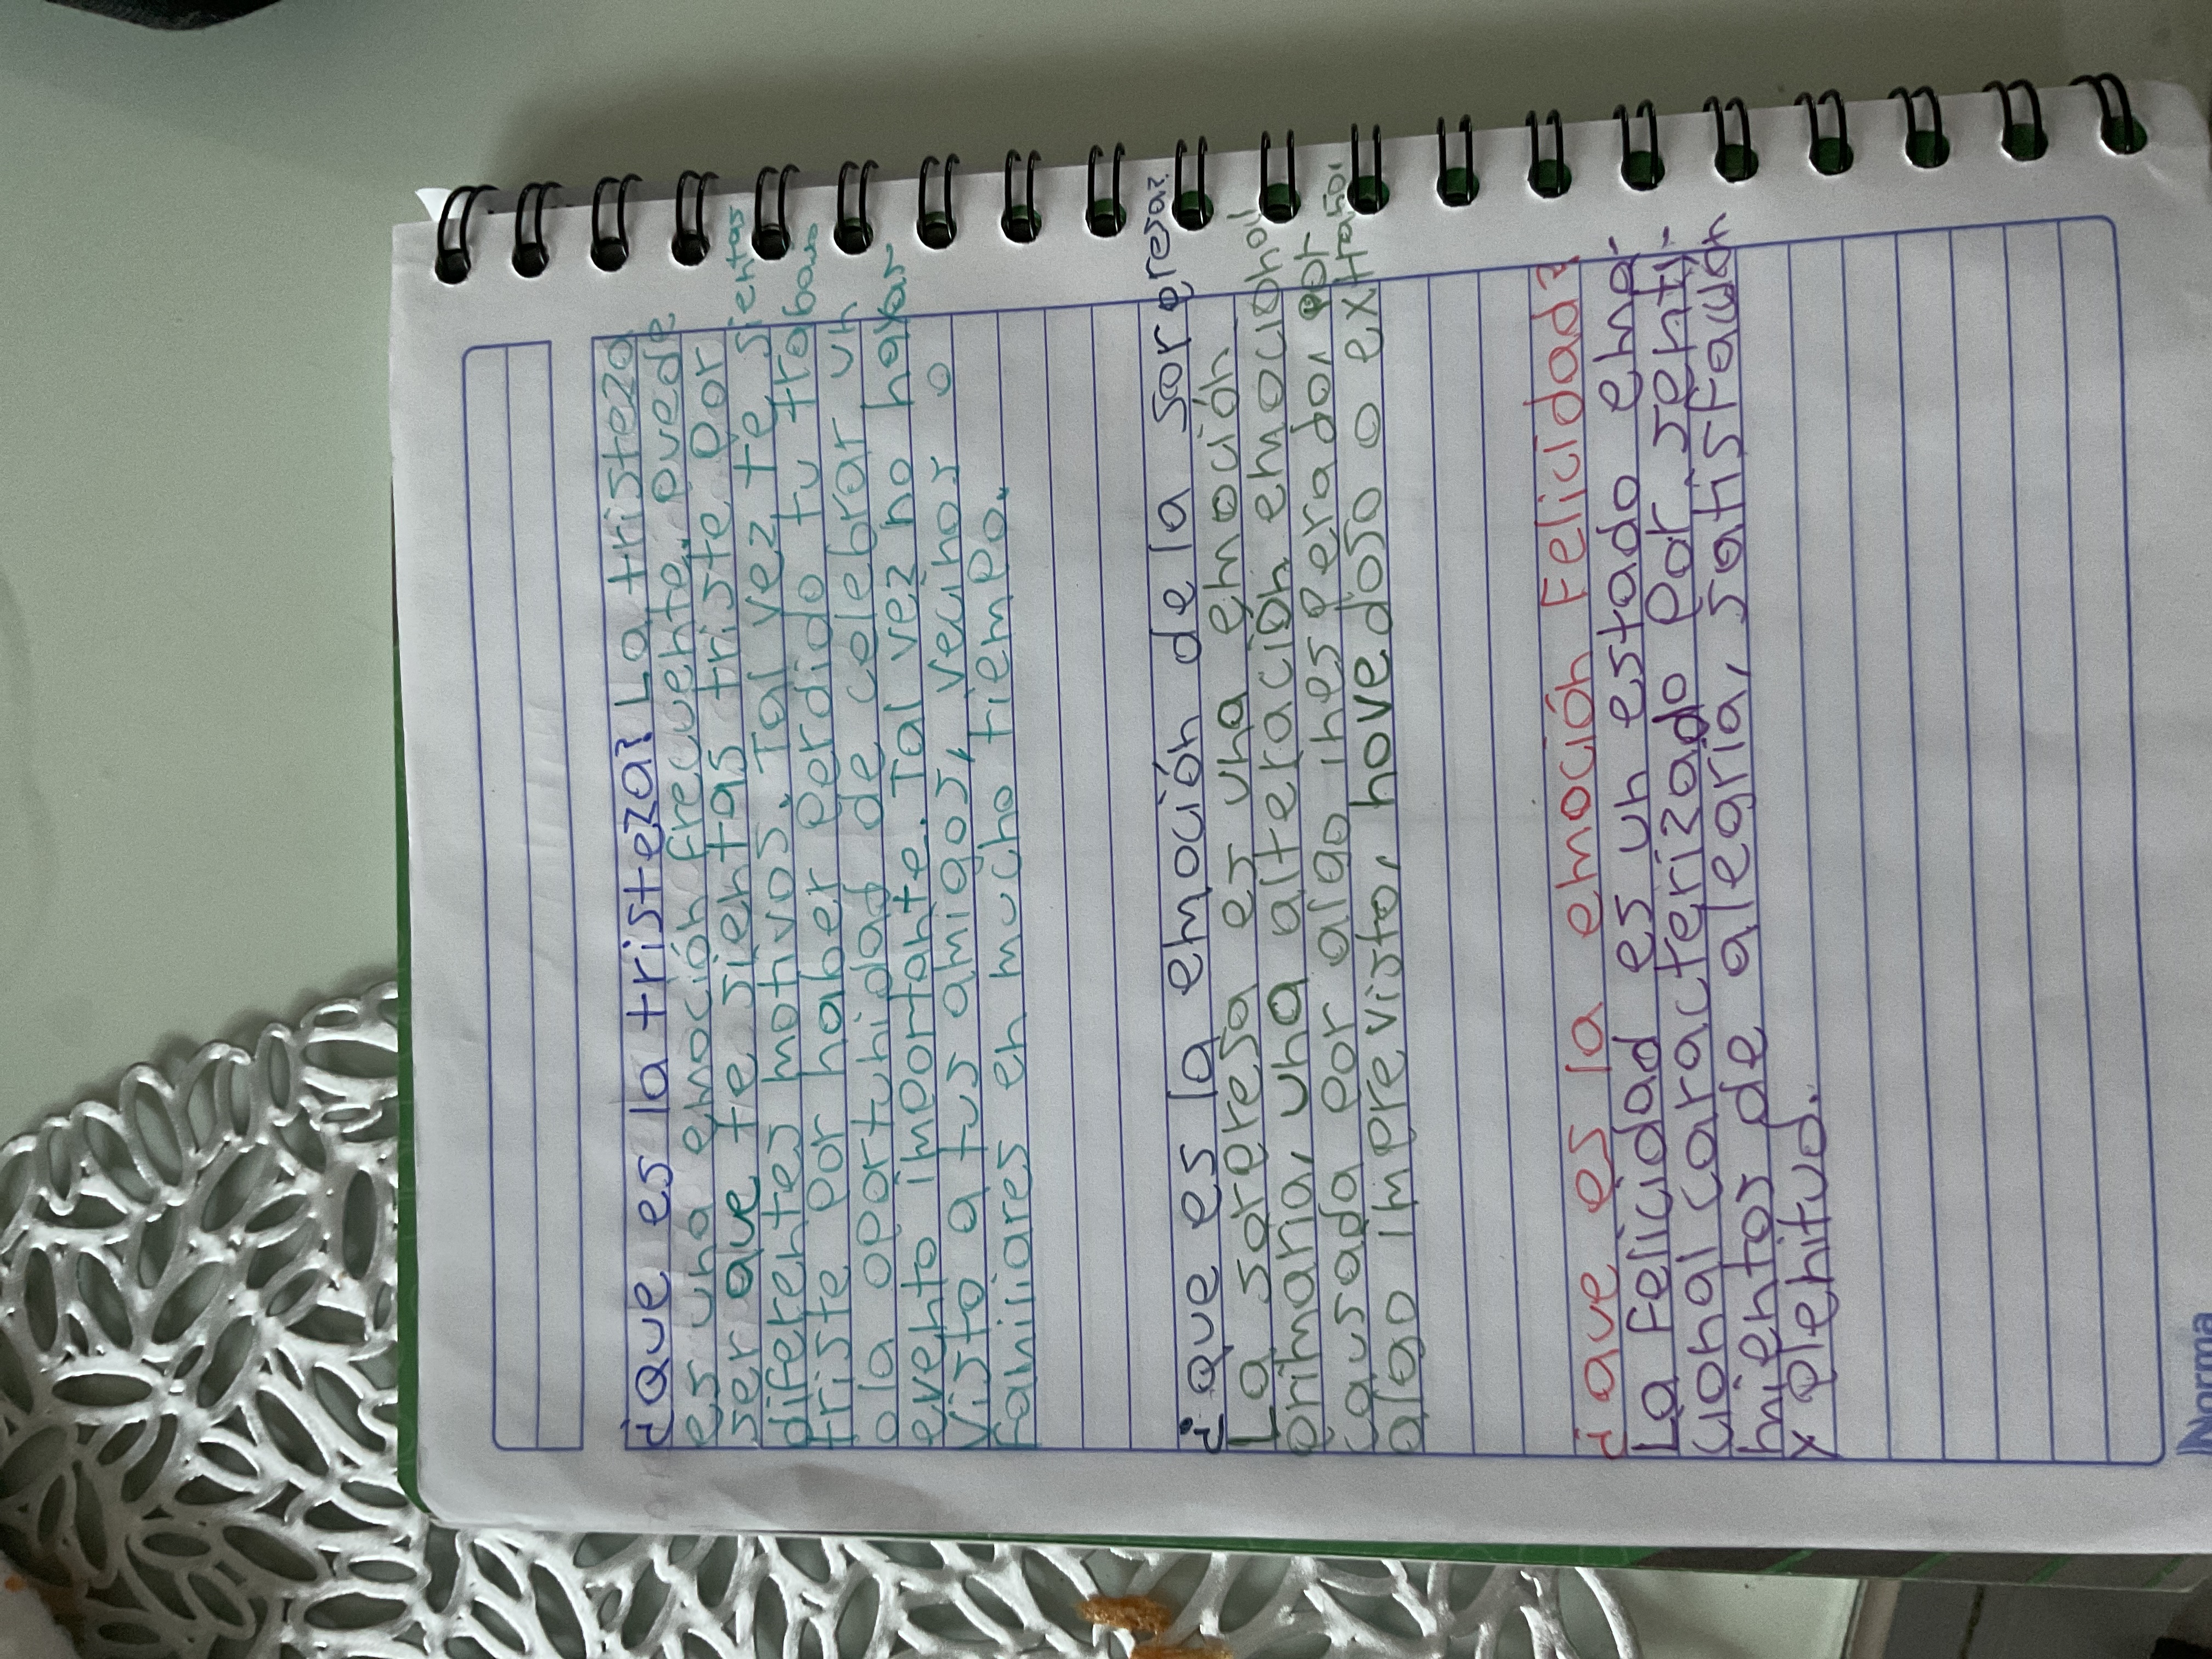 ¿Que es la tristeza? La tristeza
es una emoción frecuente. puede
ser que te sientas triste por
diferentes motivos. Tal vez te sientas
triste por haber perdido tu trabajo
o la oportunidad de celebrar un
evento importante. Tal vez no hayas
visto a tus amigos, vecinos o
familiares en mucho tiempo.
¿que es la emoción de la sorpresa?
La sorpresa es una emoción
primaria, una alteración emocional
causada por algo inesperado, por
algo imprevisto, novedoso o extraño,
¿que es la emoción Felicidad?
La Felicidad es un estado emo-
cional caracterizado por senti-
mientos de alegria, satisfacción
y plenitud.
Norma